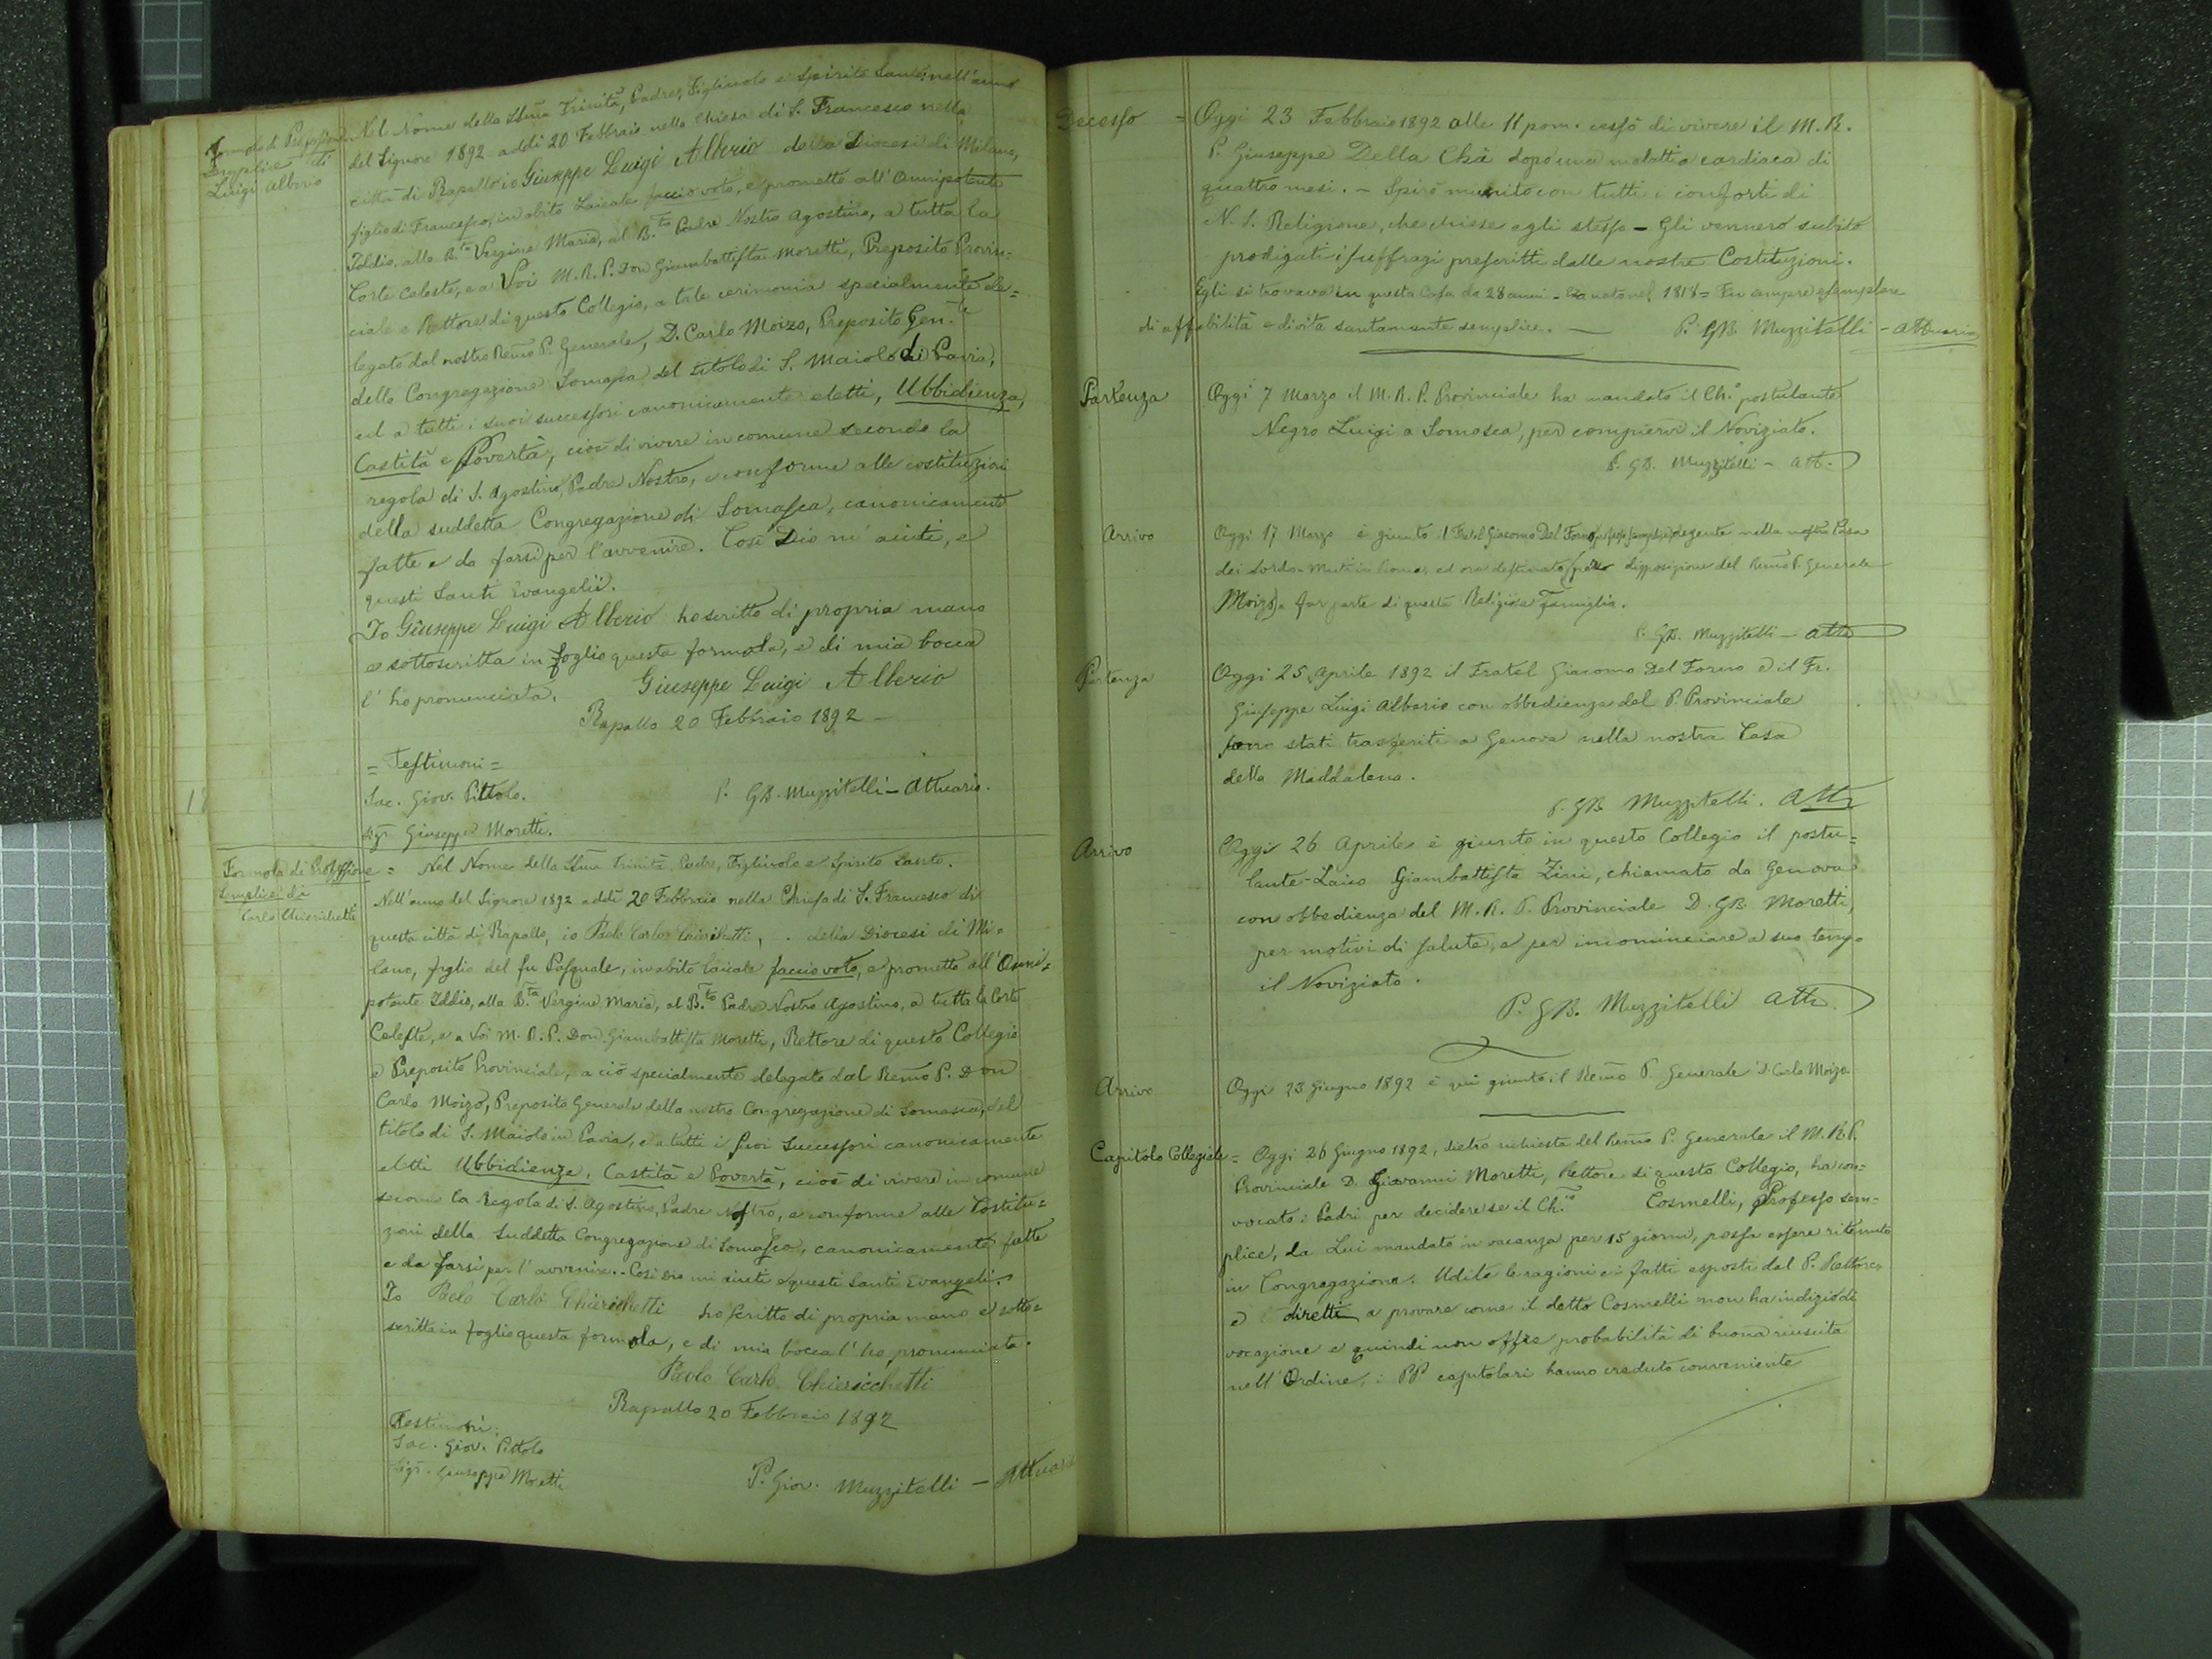 Formola di Professione
Semplice di
Luigi Alberio
Nel Nome della SSma Trinità, Padre, Figliuolo e Spirito Santo, nell'anno
del Signore 1892 addì 20 Febbraio nella Chiesa di S. Francesco nella
città di Rapallo io Giuseppe Luigi Alberio della Diocesi di Milano,
figlio di Francesco, in abito Laicale faccio voto, e prometto all'Onnipotente
Iddio, alla B.ta Vergine Maria, al B.to Padre Nostro Agostino, a tutta la
Corte Celeste, e a Voi M. R. P. Don Giambattista Moretti, Preposito Provin-
ciale e Rettore di questo Collegio, a tale cerimonia specialmente de=
legato dal nostro Remo P. Generale, D. Carlo Moizo, Preposito Gen.le
della Congregazione Somasca del titolo di S. Maiolo di Pavia,
ed a tutti i suoi successori canonicamente eletti, Ubbidienza,
Castità e Povertà, cioè di vivere in comune secondo la
regola di S. Agostino, Padre Nostro, e conforme alle costituzioni
della suddetta Congregazione di Somasca, canonicamente
fatte e da farsi per l'avvenire. Così Dio m'aiuti, e
questi Santi Evangelii.
Io Giuseppe Luigi Alberio ho scritto di propria mano
e sottoscritta in foglio questa formola, e di mia bocca
l'ho pronunciata. Giuseppe Luigi Alberio
Rapallo 20 Febbraio 1892 –
= Testimoni =
Sac. Giov. Pittolo. P. GB. Muzzitelli – Attuario.
Sigr Giuseppe Moretti.
Formola di Professione
Semplice di
Carlo Chierichetti
= Nel Nome della SSma Trinità, Padre, Figliuolo e Spirito Santo.
Nell'anno del Signore 1892 addì 20 Febbraio nella Chiesa di S. Francesco di
questa città di Rapallo, io Paolo Carlo Chierichetti, . della Diocesi di Mi=
lano, figlio del fu Pasquale, in abito laicale faccio voto, e prometto all'Onni=
potente Iddio, alla B.ta Vergine Maria, al B.to Padre Nostro Agostino, a tutta la Corte
Celeste, e a Voi M. R. P. Don Giambattista Moretti, Rettore di questo Collegio
e Preposito Provinciale, a ciò specialmente delegato dal Remo P. Don
Carlo Moizo, Preposito Generale della nostra Congregazione di Somasca, del
titolo di S. Maiolo in Pavia, e a tutti i suoi Successori canonicamente
eletti Ubbidienza, Castità e Povertà, cioè di vivere in comune
secondo la Regola di S. Agostino, Padre Nostro, e conforme alle Costitu=
zioni della Suddetta Congregazione di Somasca, canonicamente fatte
e da farsi per l'avvenire. Così Dio mi aiuti e questi Santi Evangeli.
Io Paolo Carlo Chierichetti ho scritto di propria mano e sotto=
scritta in foglio questa formola, e di mia bocca l'ho pronunciata.
Paolo Carlo Chiericchetti
Rapallo 20 Febbraio 1892
Testimoni:
Sac. Giov. Pittolo
Sigr. Giuseppe Moretti
P. Giov. Muzzitelli – Attuario
Decesso = Oggi 23 Febbraio 1892 alle 11 pom. cessò di vivere il M. R.
P. Giuseppe Della Chà dopo una malattia cardiaca di
quattro mesi. – Spirò munito con tutti i conforti di
N. S. Religione, che chiese egli stesso – Gli vennero subito
prodigati i suffragi prescritti dalle nostre Costituzioni.
Egli si trovava in questa Casa da 28 anni – Era nato nel 1818 = Fu sempre esemplare
di affabilità e di vita santamente semplice. — P. GB. Muzzitelli – Attuario
Partenza Oggi 7 Marzo il M. R. P. Provinciale ha mandato il Ch.o postulante
Negro Luigi a Somasca, per compiervi il Noviziato.
P. GB. Muzzitelli – Att.
Arrivo Oggi 17 Marzo è giunto il Fratel Giacomo Del Forno, professo semplice, degente nella nostra Casa
dei Sordo-Muti in Roma, ed ora destinato per disposizione del Remo P. Generale
Moizo, a far parte di questa Religiosa Famiglia.
P. GB. Muzzitelli – Atto
Partenza Oggi 25 Aprile 1892 il Fratel Giacomo Del Forno e il Fr.
Giuseppe Luigi Alberio con obbedienza del P. Provinciale
sono stati trasferiti a Genova nella nostra Casa
della Maddalena.
P. GB Muzzitelli. Atto
Arrivo Oggi 26 Aprile è giunto in questo Collegio il postu=
lante-Laico Giambattista Zini, chiamato da Genova
con obbedienza del M. R. P. Provinciale D. GB. Moretti,
per motivi di salute, e per incominciare a suo tempo
il Noviziato.
P. GB. Muzzitelli Atto.
Arrivo Oggi 23 Giugno 1892 è qui giunto il Remo P. Generale D. Carlo Moizo
Capitolo Collegiale = Oggi 26 Giugno 1892, dietro richiesta del Remo P. Generale il M. R. P.
Provinciale D. Giovanni Moretti, Rettore di questo Collegio, ha con=
vocato i Padri per decidere se il Ch.co Cosmelli, Professo sem-
plice, da Lui mandato in vacanza per 15 giorni, possa essere ritenuto
in Congregazione. Udite le ragioni e i fatti esposti dal P. Rettore,
e diretti a provare come il detto Cosmelli non ha indizio di
vocazione e quindi non offre probabilità di buona riuscita
nell'Ordine, i PP capitolari hanno creduto conveniente